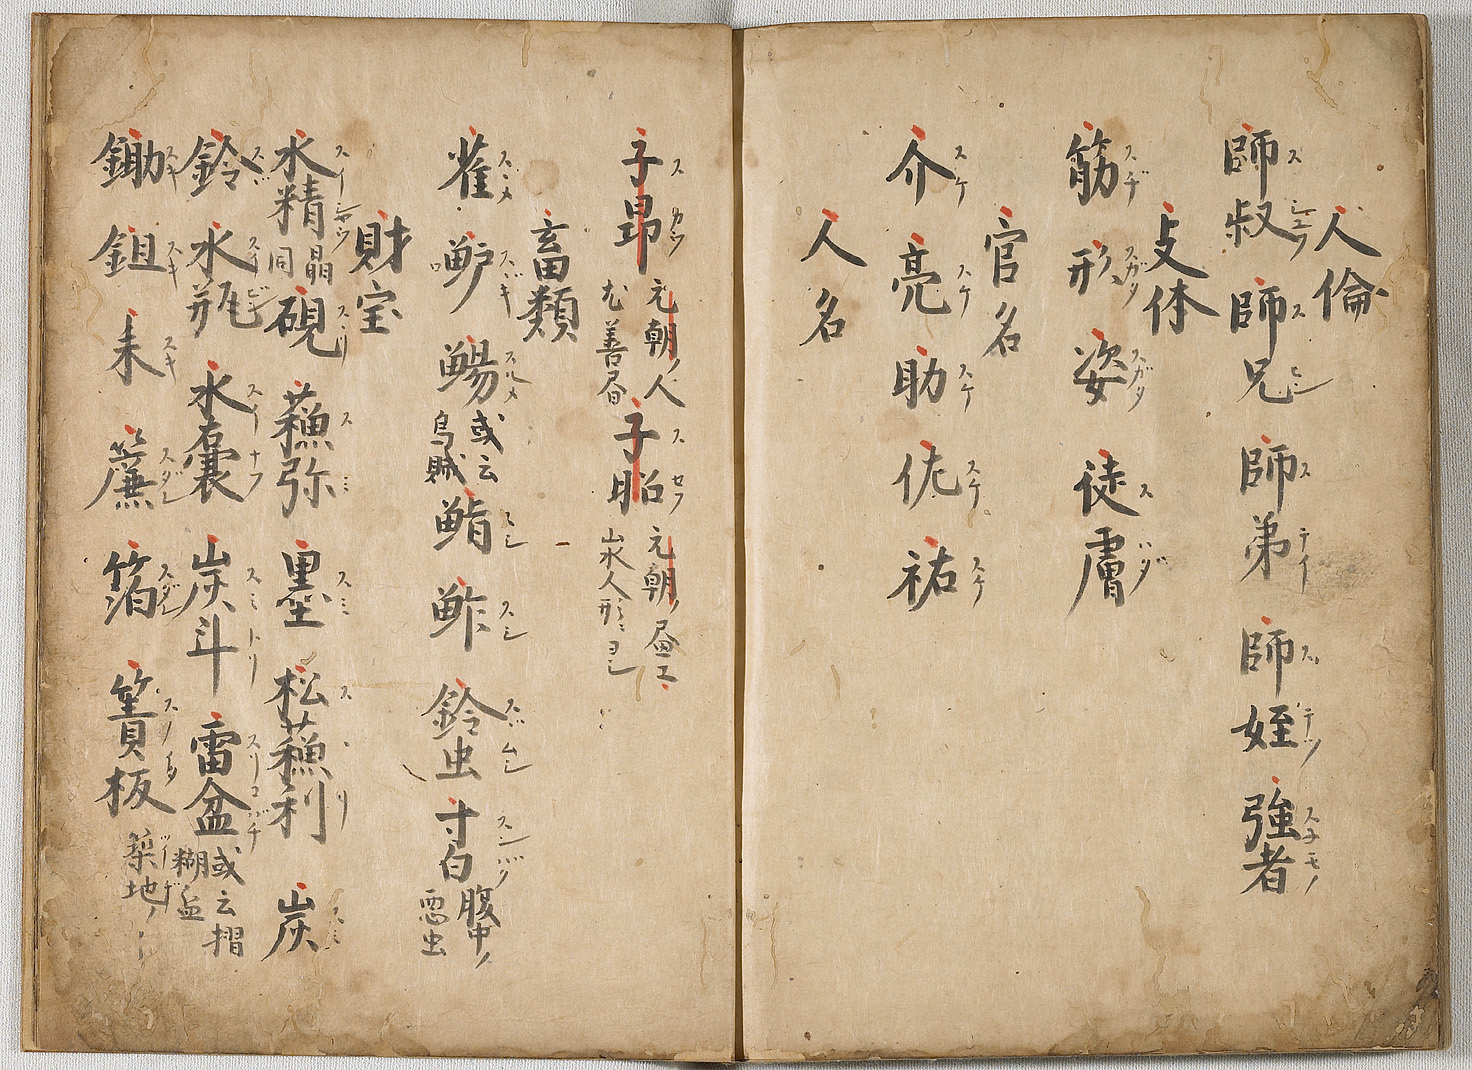 人倫
師叔 師兄 師弟 師姪 強者
スシユク スヒン ステイ ステツ スネモノ
支体
筋 形 姿 徒膚
スヂ スガタ スガタ スハダ
官名
介 亮 助 佐 祐
スケ スケ スケ スケ スケ
人名
子昂 元朝ノ人 尤善画 子昭 元朝ノ画工 山水人形ニヨシ
スカウ スセウ
畜類
雀 鱸 鯣 或云烏賊 鮨 鮓 鈴虫 寸白 腹中ノ悪虫
スヾメ スヾキ スルメ スシ スシ スヾムシ スンバク
財宝
水精 同晶 硯 蘓弥 墨 松蘓利 炭
スイシヤウ スヾリ スミ スミ スヽリ スミ
鈴 水瓶 水嚢 炭斗 雷盆 或云摺糊盆
スヾ スイビン スイナフ スミトリ スリコバチ
鋤 鉏 耒 簾 箔 簀板 築地ノ
スキ スキ スキ スダレ スダレ スノイタ ツイヂ